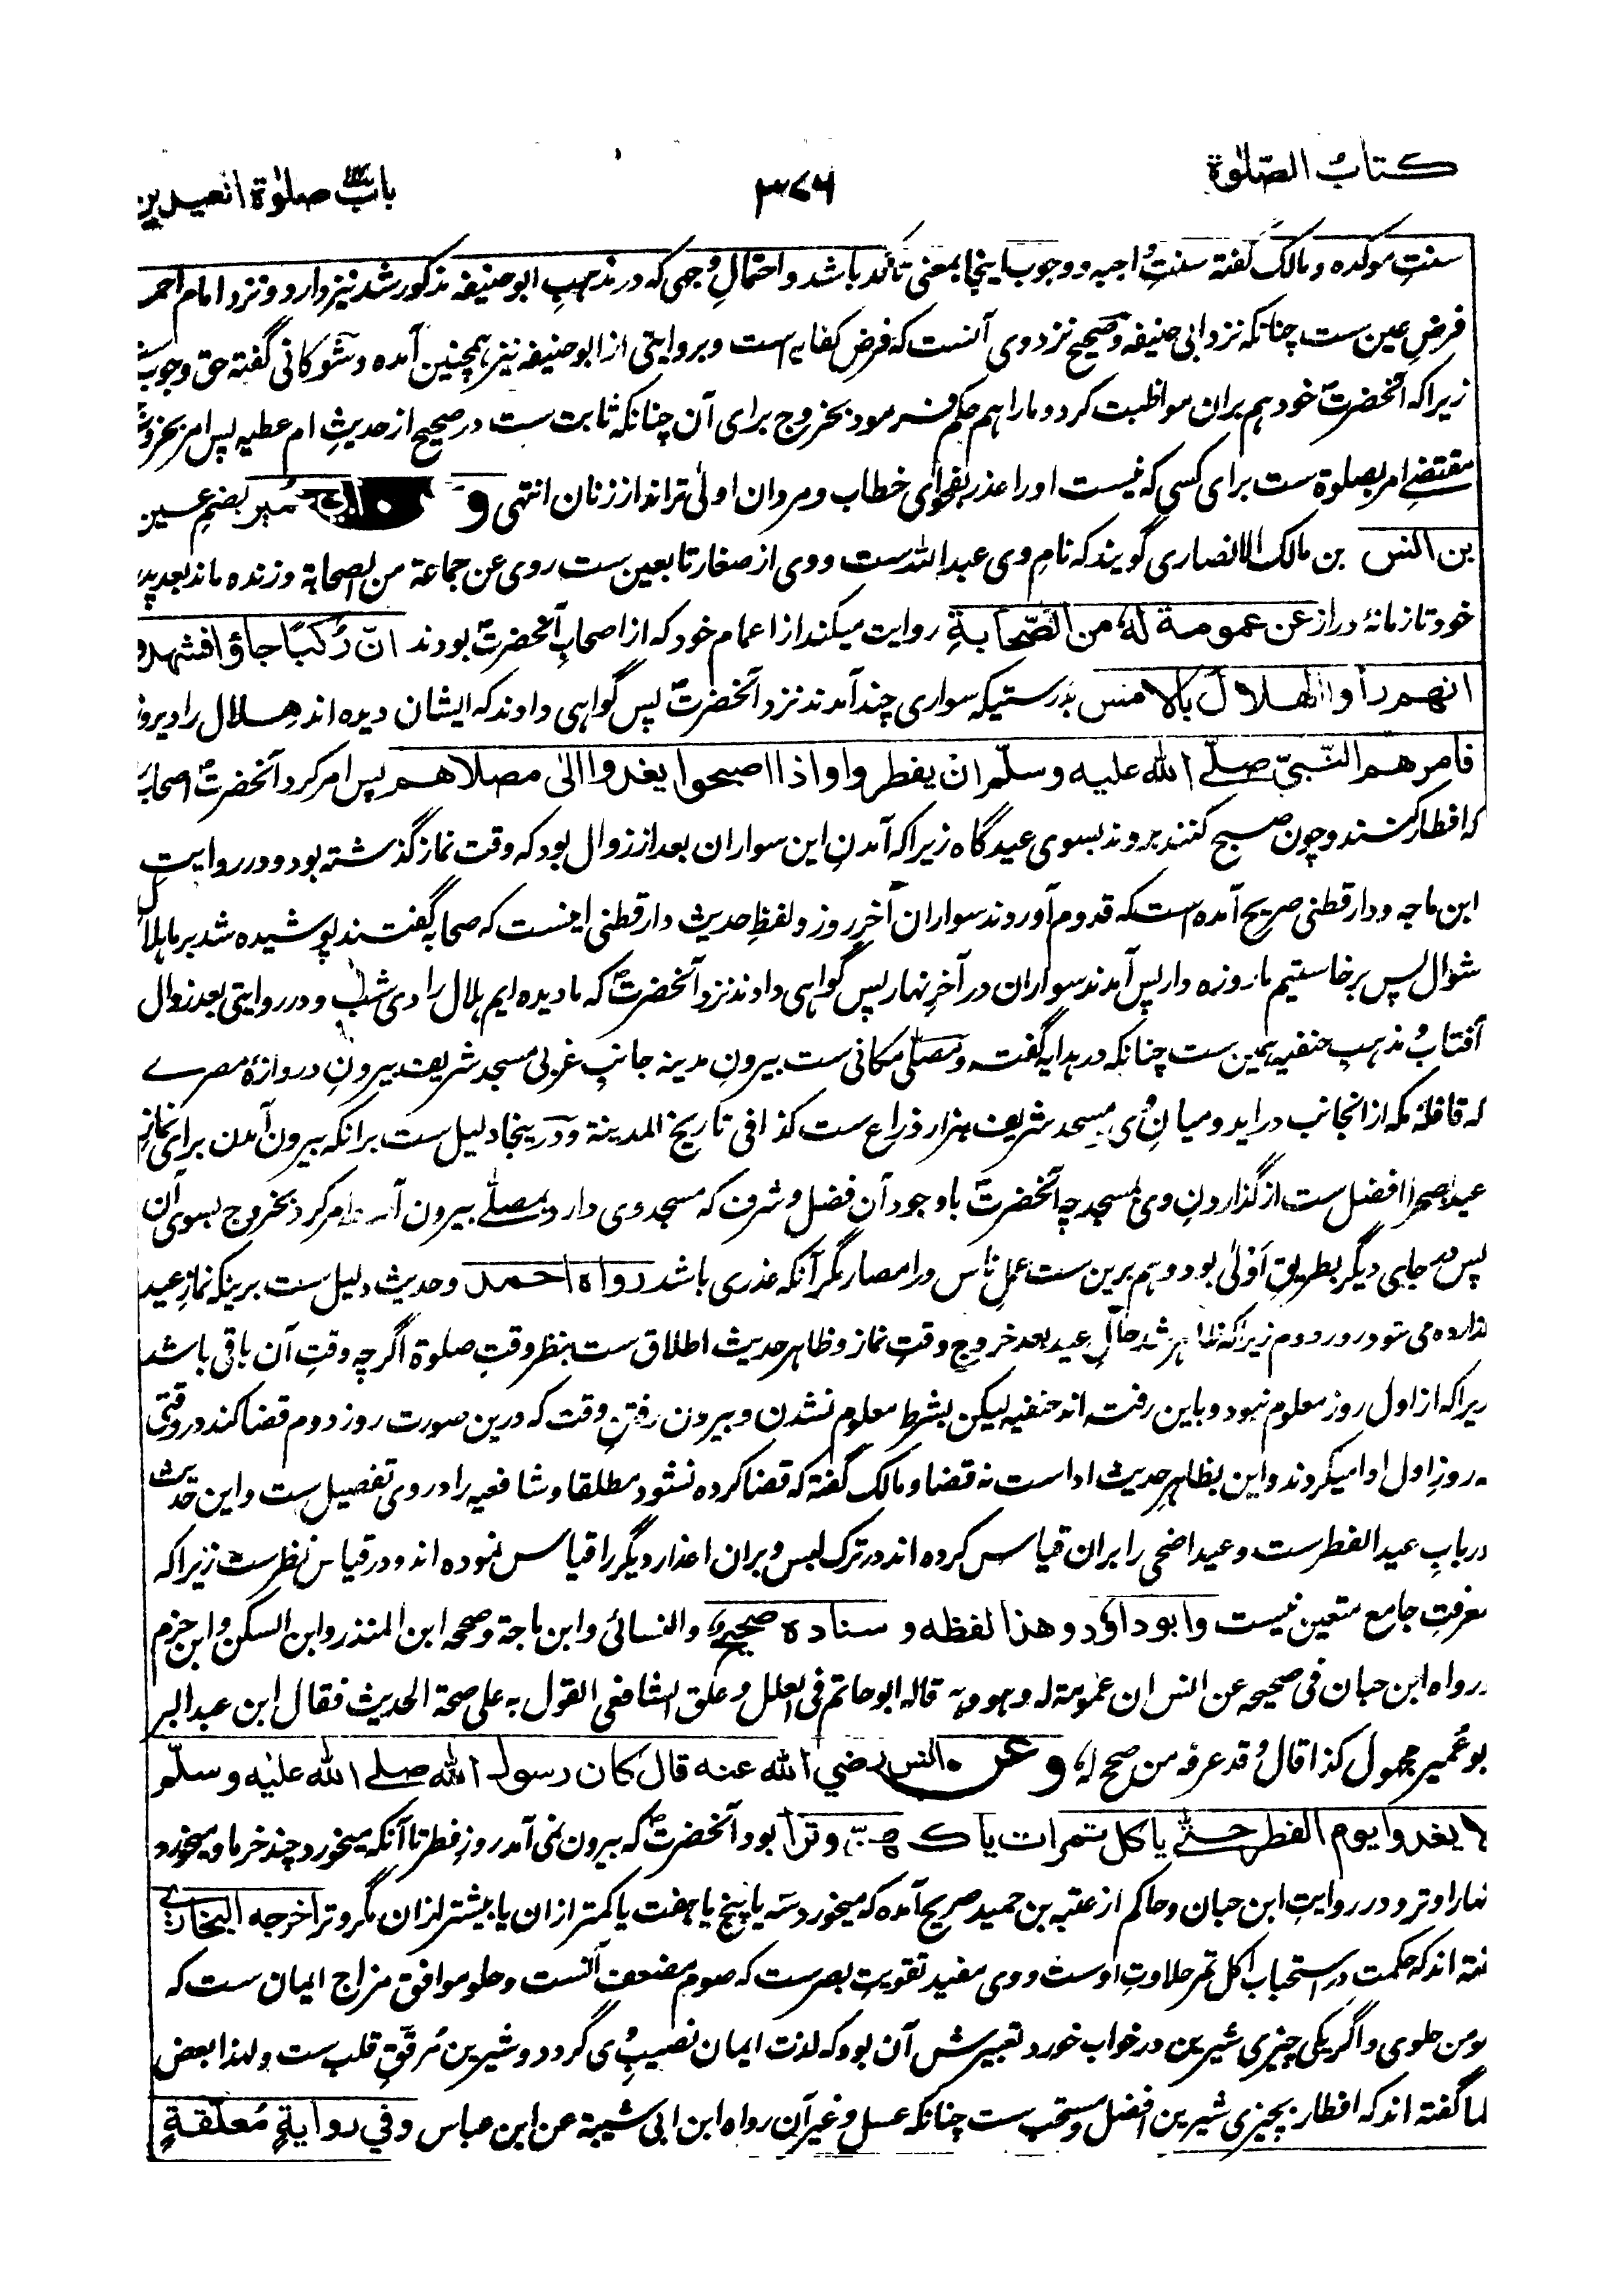 کتابُ الصّلوٰة
۳۷۶
بابُ صلوٰة العیدین
سنتِ موکده و مالک گفته سنتِ واجبه و وجوب اینجا بمعنی تاکد باشد و احتمالِ وجهی که در مذهبِ ابو حنیفه مذکور شد نیز دارد و نزد امام احمد
فرضِ عین ست چنانکه نزد ابی حنیفه و صحیح نزد وی آنست که فرض کفایه است و بروایتی از ابو حنیفه نیز همچنین آمده و شوکانی گفته حق وجوب ست
زیراکه آنحضرتؐ خود هم بران مواظبت کرد و ما را هم حکم فرمود بخروج برای آن چنانکه ثابت ست در صحیح از حدیثِ ام عطیه پس امر بخروج
مقتضے امر بصلوة ست برای کسی که نیست او را عذر بفحوای خطاب و مردان اولیٰ تر اند از زنان انتهی و عمیر بضم عین
بن انس بن مالک الانصاری گویند که نامِ وی عبد الله ست و وی از صغار تابعین ست روی عن جماعة من الصحابة و زنده ماند بعد پدر
خود تا زمانهٔ دراز عن عمومة لهٗ من الصّحابةِ روایت میکند از اعمام خود که از اصحابِ آنحضرتؐ بودند انّ رَکبًا جاؤا فشهدوا
انهم رأوا الهلالَ بالامس بدرستیکه سواری چند آمدند نزد آنحضرتؐ پس گواهی دادند که ایشان دیده اند هلال را دیروز
فامرهم النّبیّ صلّے الله علیه وسلّم ان یفطروا واذا اصبحوا یغدوا الیٰ مصلاهم پس امر کرد آنحضرتؐ اصحاب
که افطار کنند و چون صبح کنند بروند بسوی عیدگاه زیراکه آمدنِ این سواران بعد از زوال بود که وقت نماز گذشته بود و در روایتِ
ابن ماجه و دارقطنی صریح آمده است که قدوم آوردند سواران آخرِ روز و لفظِ حدیث دارقطنی اینست که صحابه گفتند پوشیده شد بر ما هلال
شوال پس برخاستیم ما روزه دار پس آمدند سواران در آخرِ نهار پس گواهی دادند نزد آنحضرتؐ که ما دیده ایم هلال را دی شب و در روایتی بعد زوال
آفتاب و مذهبِ حنفیه همین ست چنانکه در هدایه گفته و مصلّی مکانی ست بیرونِ مدینه جانبِ غربی مسجد شریف بیرونِ دروازهٔ مصرے
که قافلهٔ مکه از آنجانب دراید و میانِ وی و مسجد شریف هزار ذراع ست کذا فی تاریخ المدینة و درینجا دلیل ست برانکه بیرون آمدن برای نماز
عید بصحرا افضل ست از گذاردنِ وی بمسجد چه آنحضرتؐ با وجود آن فضل و شرف که مسجد وی دارد بمصلّے بیرون آمد و امر کرد بخروج بسوی آن
پس در جای دیگر بطریقِ اَولیٰ بود و هم برین ست عملِ ناس در امصار مگر آنکه عذری باشد رواه احمد و حدیث دلیل ست برینکه نمازِ عید
گذارده می شود در روز دوم زیراکه ظاهر شد حالِ عید بعد خروجِ وقتِ نماز و ظاهر حدیث اطلاق ست بنظر وقتِ صلوة اگرچه وقتِ آن باقی باشد
زیراکه از اول روز معلوم نبود و باین رفته اند حنفیه لیکن بشرط معلوم نشدن و بیرون رفتنِ وقت که درین صورت روز دوم قضا کند در وقتی
که روزِ اول ادا میکردند و این بظاهرِ حدیث اداست نه قضا و مالک گفته که قضا کرده نشود مطلقا و شافعیه را در وی تفصیل ست و این حدیث
در بابِ عید الفطر ست و عید اضحی را بران قیاس کرده اند در ترک لبس و بران اعذار دیگر را قیاس نموده اند و در قیاس نظر ست زیراکه
معرفتِ جامع متعین نیست وابو داؤد وهذا لفظه واسناده صحیحٌ والنسائی وابن ماجة وصححه ابن المنذر وابن السکن وابن حزم
ورواه ابن حبان فی صحیحه عن انس ان عمومة له وهو وهم قاله ابو حاتم فی العلل وعلق الشافعی القول به علی صحة الحدیث فقال ابن عبد البر
ابو عُمیر مجهول کذا قال وقد عرفه من صحح لهٗ وعن انس رضي الله عنه قال کان رسول الله صلے الله علیه وسلّم
لا یغدوا یوم الفطر حتّٰے یاکل تمرات یاکلهنّ وترًا بود آنحضرتؐ که بیرون نمی آمد روزِ فطر تا آنکه میخورد چند خرما و میخورد
آنها را وتر و در روایتِ ابن حبان و حاکم از عتبه بن حمید صریح آمده که میخورد سه یا پنج یا هفت یا کمتر ازان یا بیشتر ازان مگر وتر اخرجه البخاریے
گفته اند که حکمت در استحباب اکل تمر حلاوتِ اوست و وی مفید تقویتِ بصرست که صوم مضعف آنست و حلو موافقِ مزاج ایمان ست که
مومن حلوی و اگر یکی چیزی شیرین در خواب خورد تعبیرش آن بود که لذت ایمان نصیبِ وی گردد و شیرین مُرقّقِ قلب ست و لهذا بعض
علما گفته اند که افطار بچیزی شیرین افضل و مستحب ست چنانکه عسل و غیر آن رواه ابن ابی شیبة عن ابن عباس وفي روایةٍ مُعلّقةٍ